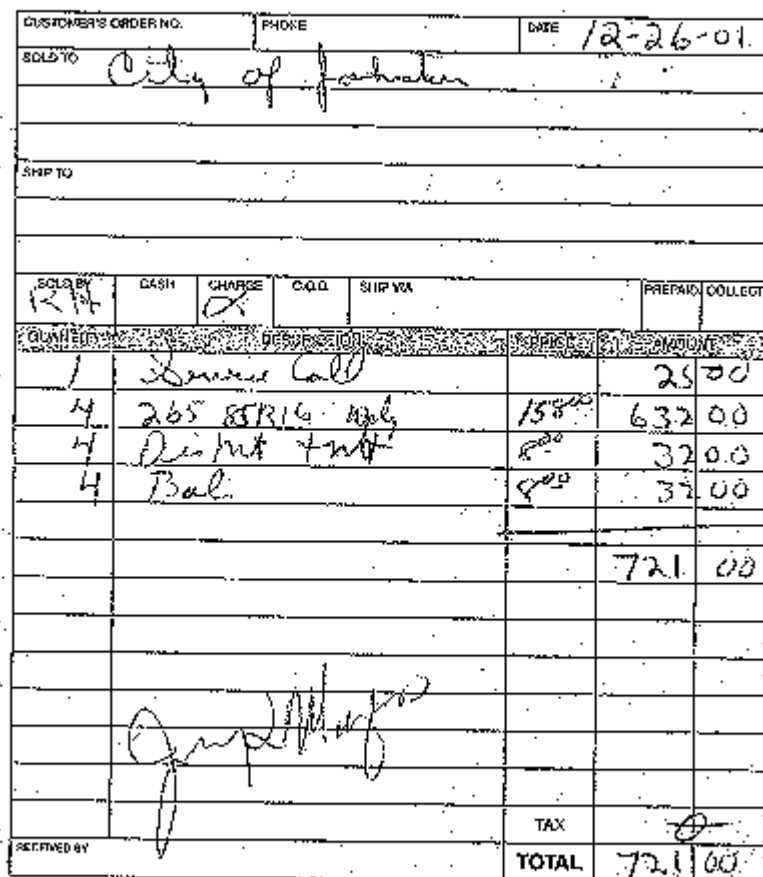 CUSTOMER'S ORDER NO. PHONE DATE 12-26-01
SOLD TO City of
SHIP TO
SOLD BY CASH CHARGE C.O.D. SHIP VIA PREPAID COLLECT
RH
QUANTITY DESCRIPTION PRICE AMOUNT
1 Service Call 25 00
4 265 85R16 158 00 632 00
4 Dismt + mt 8 00 32 00
4 Bal. 8 00 32 00
721 00
TAX 0
RECEIVED BY TOTAL 721 00